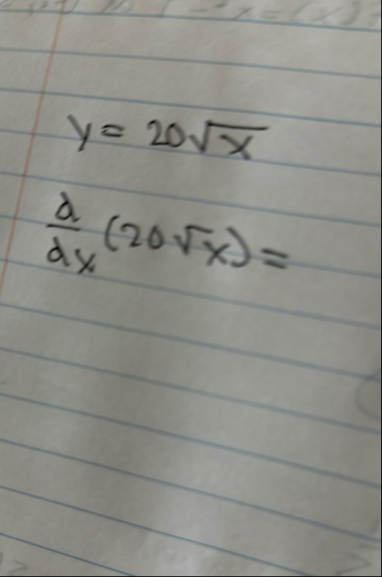 y = 20√x
d/dx (20√x) =